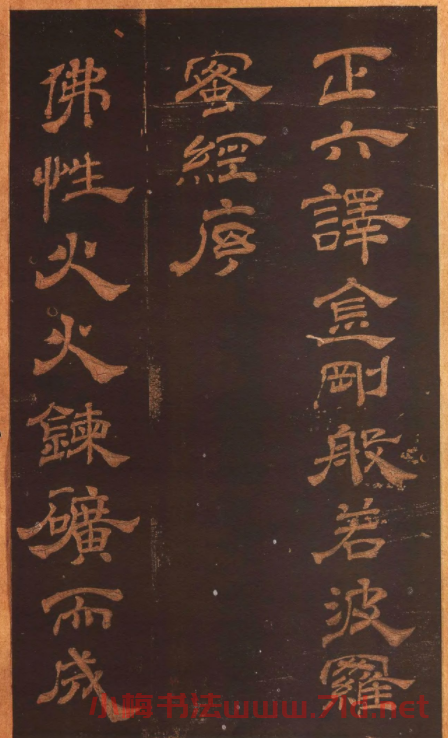 正六譯金剛般若波羅
蜜經序
佛性火火鍊礦而成
小梅书法www.7lu.net